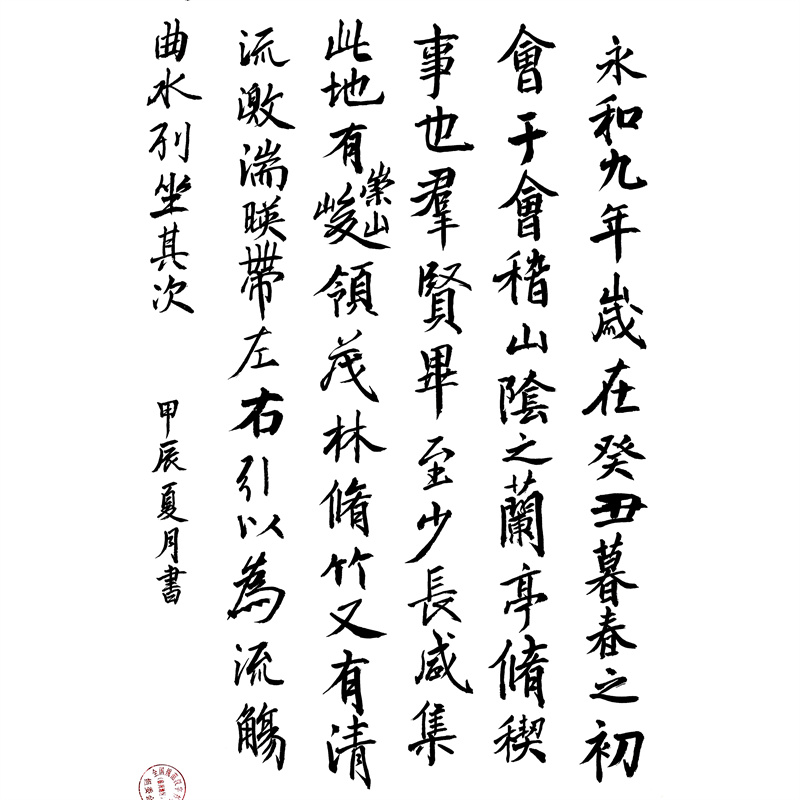 永和九年歲在癸丑暮春之初
會于會稽山陰之蘭亭脩稧
事也羣賢畢至少長咸集
此地有崇山峻領茂林脩竹又有清
流激湍暎帶左右引以為流觴
曲水列坐其次
甲辰夏月書